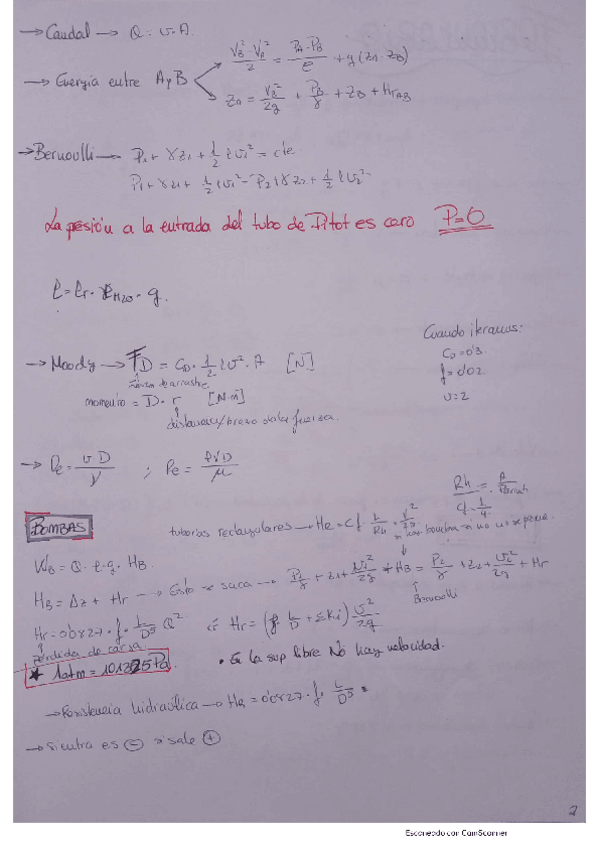 → Caudal → Q = v.A.
→ Energía entre A y B
(V_B² - V_A²)/2 = (P_A - P_B)/ρ + g(z_A - z_B)
z_A = V_B²/2g + P_B/γ + z_B + Hr_AB
→ Bernoulli → P₁ + γz₁ + 1/2 ρv₁² = cte
P₁ + γz₁ + 1/2 ρv₁² = P₂ + γz₂ + 1/2 ρv₂²
La presión a la entrada del tubo de Pitot es cero P=0
ρ = ρr · ρH2O · g.
Cuando iteramos:
C_D = 0'3
f = 0'02
v = 2
→ Moody → F_D = C_D · 1/2 · v² · A [N]
momento = D · r [N·m]
distancia/brazo de la fuerza.
→ Re = vD/ν ; Re = ρvD/μ
Rh = A/
4 · 1/4
BOMBAS
tuberías rectangulares → He = Cf L/Rh · v²/2g
si hay bomba si no no se pone
W_B = Q · ρ · g · H_B
H_B = Δz + Hr → Esto se saca → P₁/γ + z₁ + v₁²/2g + H_B = P₂/γ + z₂ + v₂²/2g + Hr
Bernoulli
Hr = 0'0827 · f · L/D⁵ Q² ó Hr = (f L/D + ΣKi) v²/2g
Pérdida de carga
★ 1atm = 101325 Pa
• En la sup libre No hay velocidad.
→ Resistencia hidraúlica → H_B = 0'0827 · f · L/D⁵
→ Si entra es ⊖ si sale ⊕
2
Escaneado con CamScanner